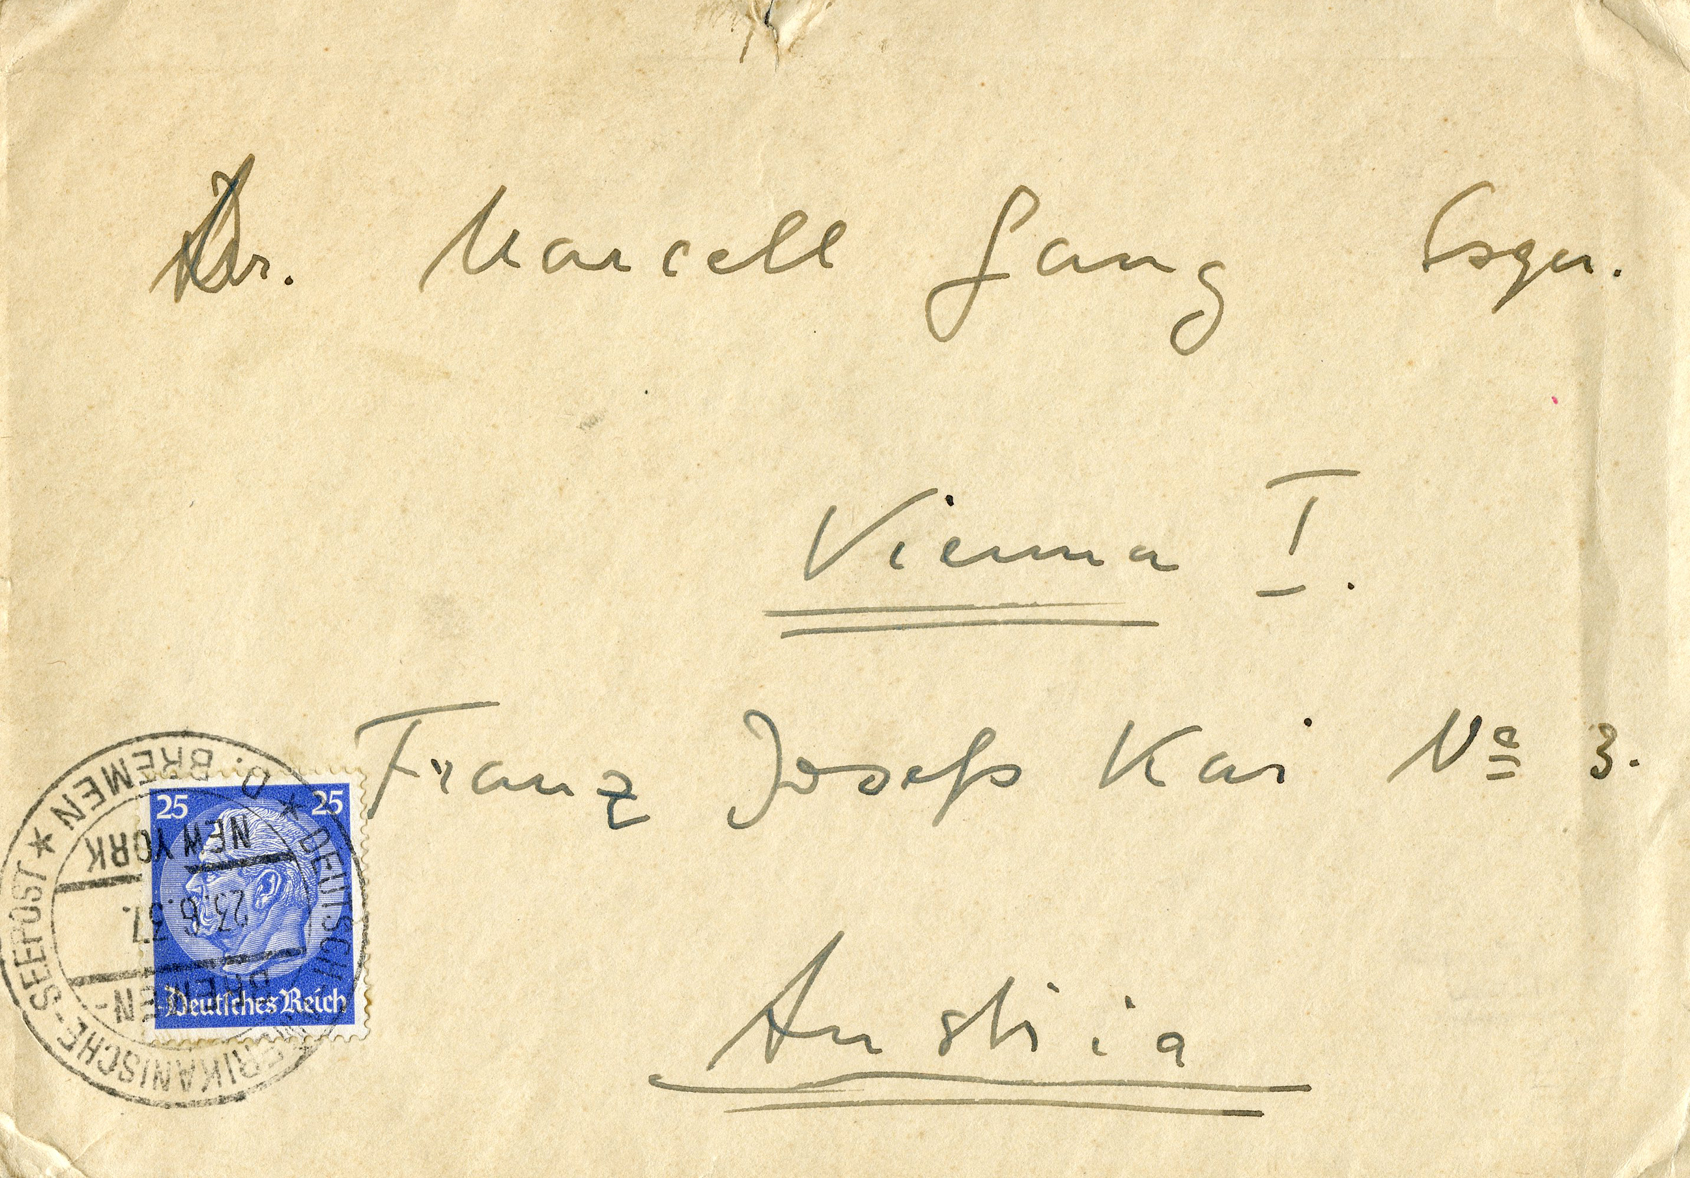 Dr. Marcell Gang Esqu.
Vienna I.
Franz Josefs Kai No 3.
Austria
25 25
Deutsches Reich
DEUTSCH-AMERIKANISCHE-SEEPOST
D. BREMEN
BREMEN-
23.6.37.
NEW YORK